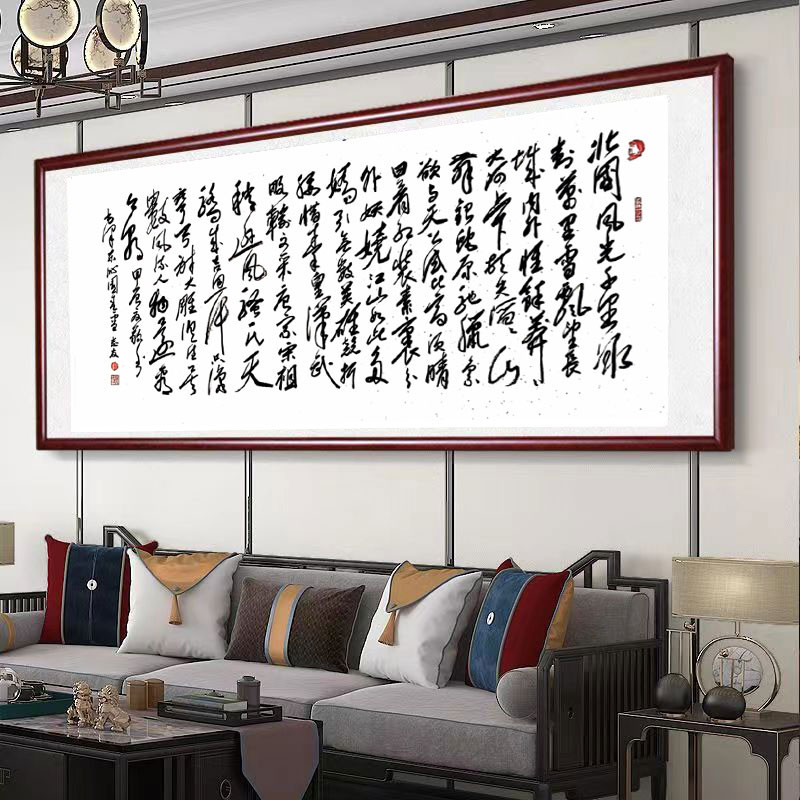 北國風光千里冰
封萬里雪飘望长
城内外惟餘莽莽
大河上下顿失滔滔山
舞银蛇原驰蠟象
欲与天公试比高须晴
日看红装素裹分
外妖娆江山如此多
嬌引无数英雄竞折
腰惜秦皇漢武
略输文采唐宗宋祖
稍逊風骚一代天
骄成吉思汗只识
弯弓射大雕俱往矣
數風流人物还看
今朝
毛泽东沁园春雪